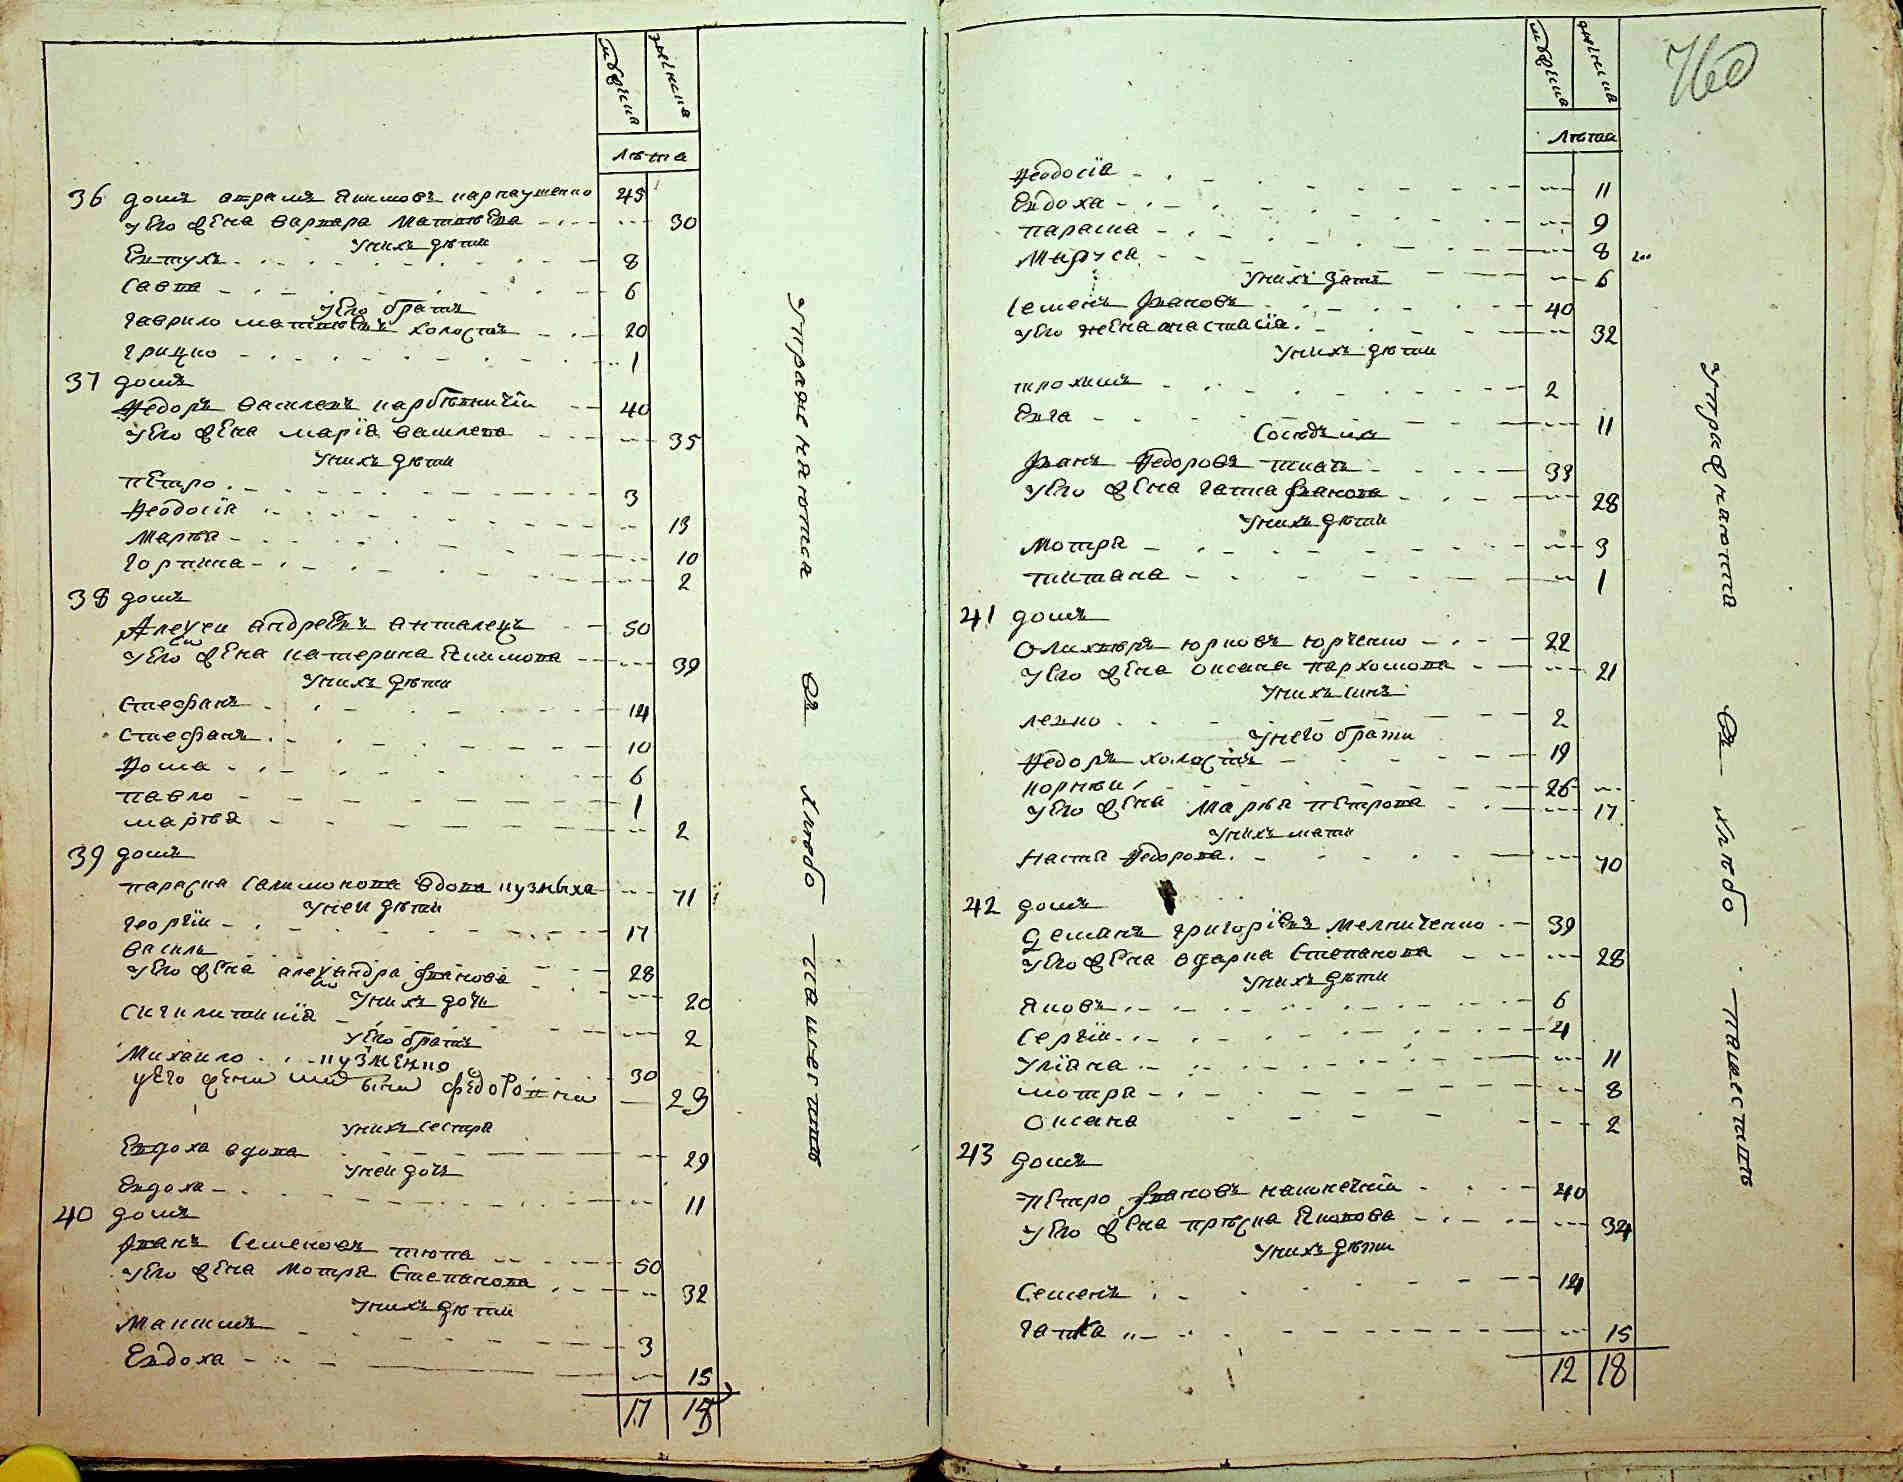 мужска
женска
лѣта
36 домъ аврамъ Якимовъ карпаушенко 45
Его жена варвара Матвѣева 30
У нихъ дѣти
Евтухъ 8
Савва 6
Его братъ
Гаврило матвѣевъ холостъ 20
Грицко 1
37 домъ
Ѳедоръ василевъ 40
Его жена марїя василева 35
У нихъ дѣти
Петро 3
Ѳеодосїя 13
Марѳа 10
Горпина 2
38 домъ
Алеѯеи андреевъ анталецъ 50
Его жена катерина Якимова 39
У нихъ дѣти
Стефанъ 14
Стефанъ 10
Ѳома 6
Павло 1
марѳа 2
39 домъ
Параска Салимонова вдова кузмиха 71
У неи дѣти
Георгїи 17
Василь 28
Его жена алеѯандра Іванова 20
У нихъ дочь
Сигклитикїя 2
Его братъ
Михаило кузменко 30
Его жена федоровна 29
У нихъ сестра
Евдоха вдова 29
У неи дочь
Евдоха 11
40 домъ
Іванъ Семеновъ тюпа 50
Его жена Мотря Степанова 32
У нихъ дѣти
Максимъ 3
Евдоха 15
17 15
Упражняются
въ
хлѣбо
пашествѣ
760
мужска
женска
лѣта
Ѳеодосїя 11
Евдоха 9
Параска 8
Маруся 6
У нихъ зять
Семенъ Івановъ 40
Его жена анастасїя 32
У нихъ дѣти
Трохимъ 2
Евга 11
Сосѣдъ ихъ
Іванъ Ѳедоровъ 33
Его жена Гапка Іванова 28
У нихъ дѣти
Мотря 3
Титяна 1
41 домъ
Олиѳѣръ юрковъ юрченко 22
Его жена оксана пархомова 21
У нихъ синъ
левко 2
У него брати
Ѳедоръ холостъ 19
корнѣи 26
Его жена Марѳа Петрова 17
У нихъ мати
Настя Ѳедорова 70
42 домъ
Демянъ григорїевъ мелниченко 39
Его жена одарка Степанова 28
У нихъ дѣти
Яковъ 6
Сергїи 4
Улїана 11
мотря 8
Оксана 2
43 домъ
Петро Івановъ наконечнїи 40
Его жена прѣска Якова 34
У нихъ дѣти
Семенъ 14
Гапка 15
12 18
Упражняются
въ
хлѣбо
пашествѣ